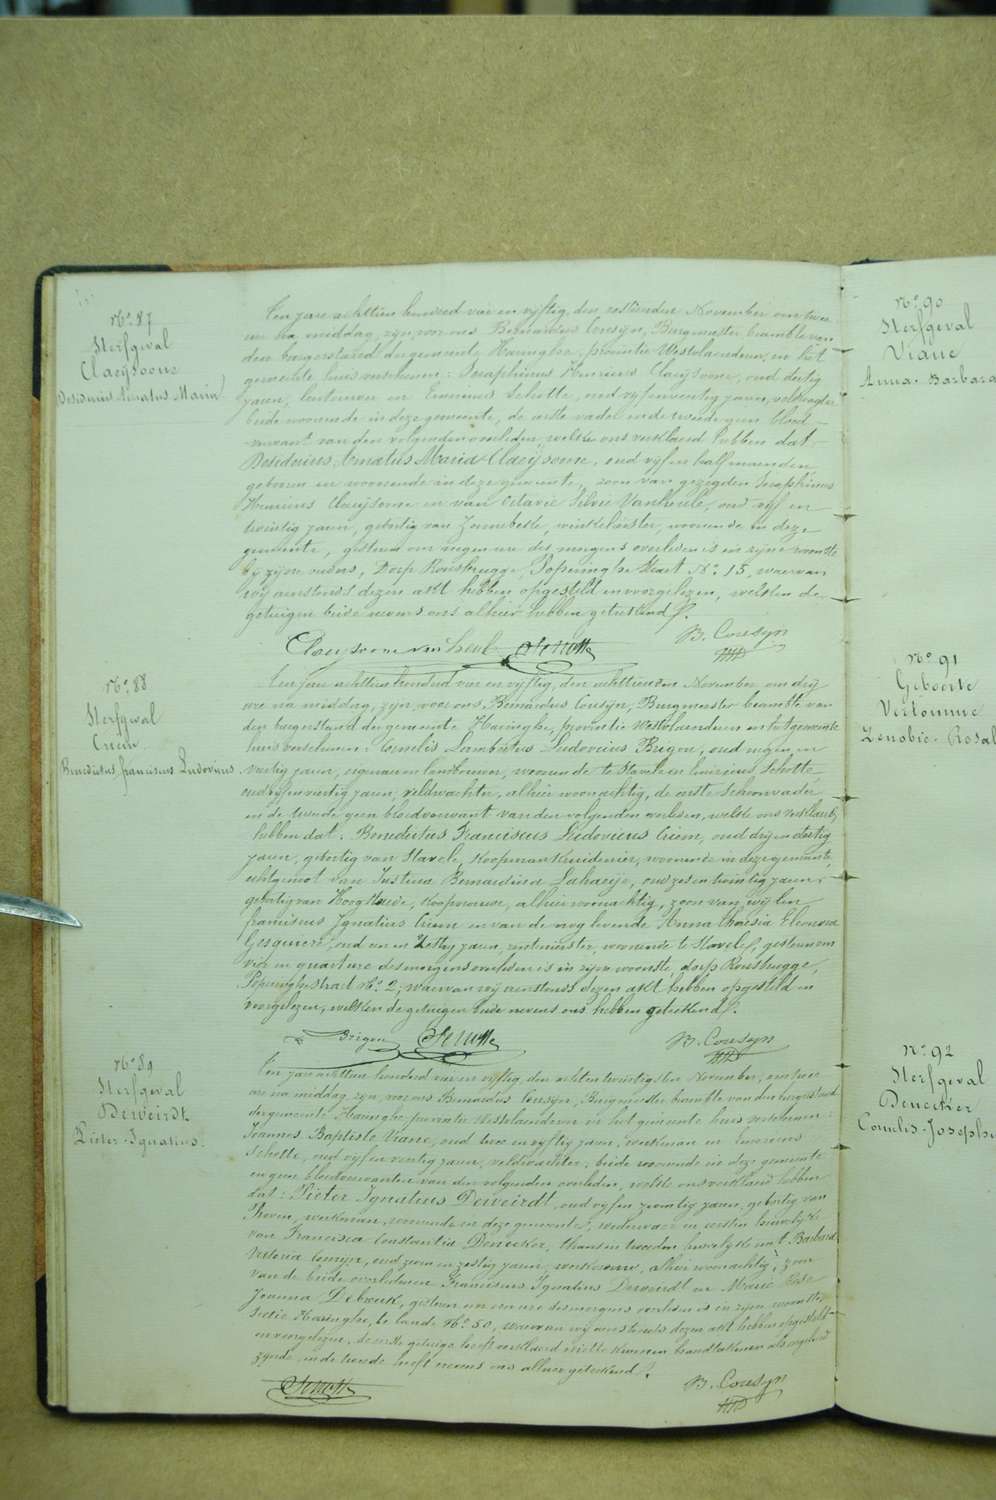 No. 87
Sterfgeval
Claeijsoone
Desiderius Amatus Maria
Ten jare achttien honderd vier en vijftig, den zestienden November om twee
ure na middag, zijn voor ons Bernardus Cousijn, Burgmeester beambte van
den burgerstand der gemeente Haringhe, provintie Westvlaenderen, in het
gemeente huis verschenen: Seraphinus Henricus Claeijsoone, oud dertig
jaren, en Livinus Schotte, oud vijfenveertig jaren, veldwachter
beide woonende in deze gemeente, de eerste vader en de tweede geen bloed-
verwant van den volgenden overleden, welke ons verklaerd hebben dat
Desiderius Amatus Maria Claeijsoone, oud vijf en half maenden,
geboren en woonende in deze gemeente, zoon van gezegden Seraphinus
Henricus Claeijsoone en van Octavie Silvie Vanheule, oud vijf en
twintig jaren, geboortig van Zonnebeke, winkelierster, woonende in deze
gemeente, gisteren om negen ure des morgens overleden is in zijne woonste
bij zijne ouders, Dorp Rousbrugge, Poperinghe straet No. 15, waervan
wij aenstonds dezen akt hebben opgesteld en voorgelezen, welken de
getuigen beide nevens ons alhier hebben geteekend.
Claeysoone vanheule Schotte B. Cousyn
No. 88
Sterfgeval
Criem
Benedictus franciscus Ludovicus
Ten jare achttien honderd vier en vijftig, den achttienden November om drij
ure na middag, zijn voor ons Bernardus Cousijn, Burgmeester beambte van
den burgerstand der gemeente Haringhe, provintie Westvlaenderen in het gemeente
huis verschenen: Cornelis Lambertus Ludovicus Brigou, oud negen en
veertig jaren, eigenaer en landbouwer, woonende te Stavele en Livinus Schotte
oud vijfenveertig jaren, veldwachter, alhier woonachtig, de eerste schoonvader
en de tweede geen bloedverwant van den volgenden overleden, welke ons verklaerd
hebben dat: Benedictus Franciscus Ludovicus Criem, oud drij en dertig
jaren, geboortig van Stavele, koopman kruidenier, woonende in deze gemeente,
echtgenoot van Justina Bernardina Lahaeije, oud zes en twintig jaren,
geboortig van Hoogstaede, koopvrouw, alhier woonachtig, zoon van wijlen
franciscus Ignatius Criem en van de nog levende Anna Theresia Eleonora
Gesquiere, oud een en zestig jaren, rentenierster, woonende te Stavele, gisteren om
vier en quart ure des morgens overleden is in zijne woonste, dorp Rousbrugge,
Poperinghestraet No. 2, waervan wij aenstonds dezen akt hebben opgesteld en
voorgelezen, welken de getuigen beide nevens ons hebben geteekend.
Brigou Schotte B. Cousyn
No. 89
Sterfgeval
Deweirdt
Pieter Ignatius.
Ten jare achttien honderd vier en vijftig, den achtentwintigsten November, om twee
ure na middag zijn voor ons Bernardus Cousijn, Burgmeester beambte van den burgerstand
der gemeente Haringhe, provintie Westvlaenderen in het gemeente huis verschenen:
Joannes Baptiste Viane, oud twee en vijftig jaren, werkman en Livinus
Schotte, oud vijf en veertig jaren, veldwachter; beide woonende in deze gemeente
en geen bloedverwanten van den volgenden overleden, welke ons verklaerd hebben
dat: Pieter Ignatius Deweirdt, oud vijf en zeventig jaren, geboortig van
Proven, werkman, woonende in deze gemeente, weduwaer in eersten huwelijke
van Francisca Constantia Denecker, thans in tweeden huwelijke met Barbara
Victoria Comijn, oud en zestig jaren, werkvrouw, alhier woonachtig, zoon
van de beide overledenen Franciscus Ignatius Deweirdt en Marie Rose
Joanna Debrock, gisteren om een ure des morgens overleden is in zijne woonste,
Sectie Haringhe, te lande No. 50, waervan wij aenstonds dezen akt hebben opgesteld
en voorgelezen, de eerste getuige heeft verklaerd niet te kunnen handteekenen als ongeleerd
zijnde, en de tweede heeft nevens ons alhier geteekend.
Schotte B. Cousyn
No. 90
Sterfgeval
Viane
Anna-Barbara
No. 91
Geboorte
Vertomme
Zenobie-Rosal
No. 92
Sterfgeval
Denecker
Cornelis-Josephe